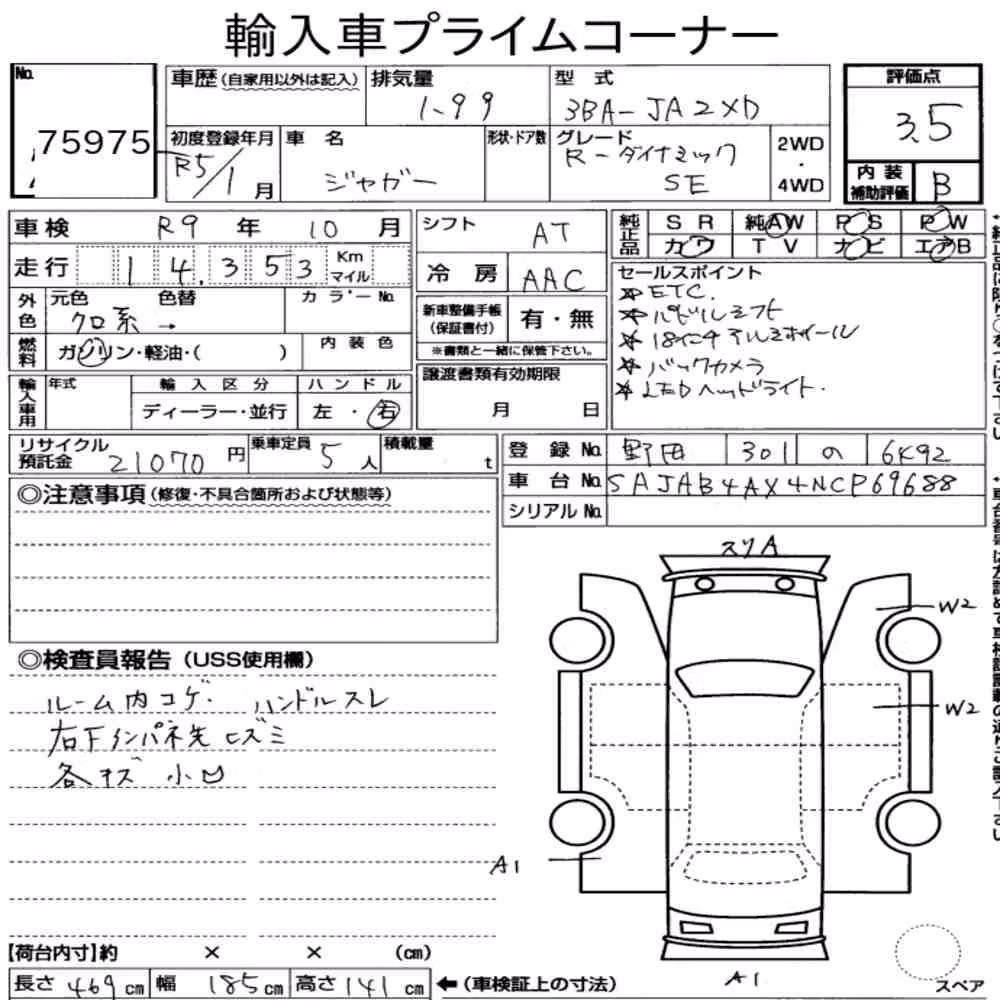 輸入車プライムコーナー
No. 75975
車歴(自家用以外は記入)
排気量 1.99
型式 3BA-JA2XD
評価点 3.5
初度登録年月 R5/1月
車名 ジャガー
形状・ドア数
グレード R-ダイナミック SE
2WD・4WD
内装補助評価 B
車検 R9年10月
シフト AT
純正品 SR 純AW PS PW
カワ TV ナビ エアB
走行 14,353 Km マイル
冷房 AAC
セールスポイント
☆ETC.
☆パドルシフト
☆18インチアルミホイール
☆バックカメラ
☆LEDヘッドライト.
外色 元色 クロ系 → 色替 カラーNo.
新車整備手帳(保証書付) 有・無
※書類と一緒に保管下さい。
燃料 ガソリン・軽油・( ) 内装色
譲渡書類有効期限 月 日
輸入車用 年式 輸入区分 ディーラー・並行 ハンドル 左・右
リサイクル預託金 21070円 乗車定員 5人 積載量 t
登録No. 野田 301 の 6492
車台No. SAJAB4AX4NCP69688
シリアルNo.
◎注意事項(修復・不具合箇所および状態等)
スリA
W2
W2
A1
A1
◎検査員報告(USS使用欄)
ルーム内コゲ. ハンドルスレ
右下インパネ先ヒズミ
各キズ 小凹
【荷台内寸】約 × × (cm)
長さ 469cm 幅 185cm 高さ 141cm ←(車検証上の寸法)
スペア